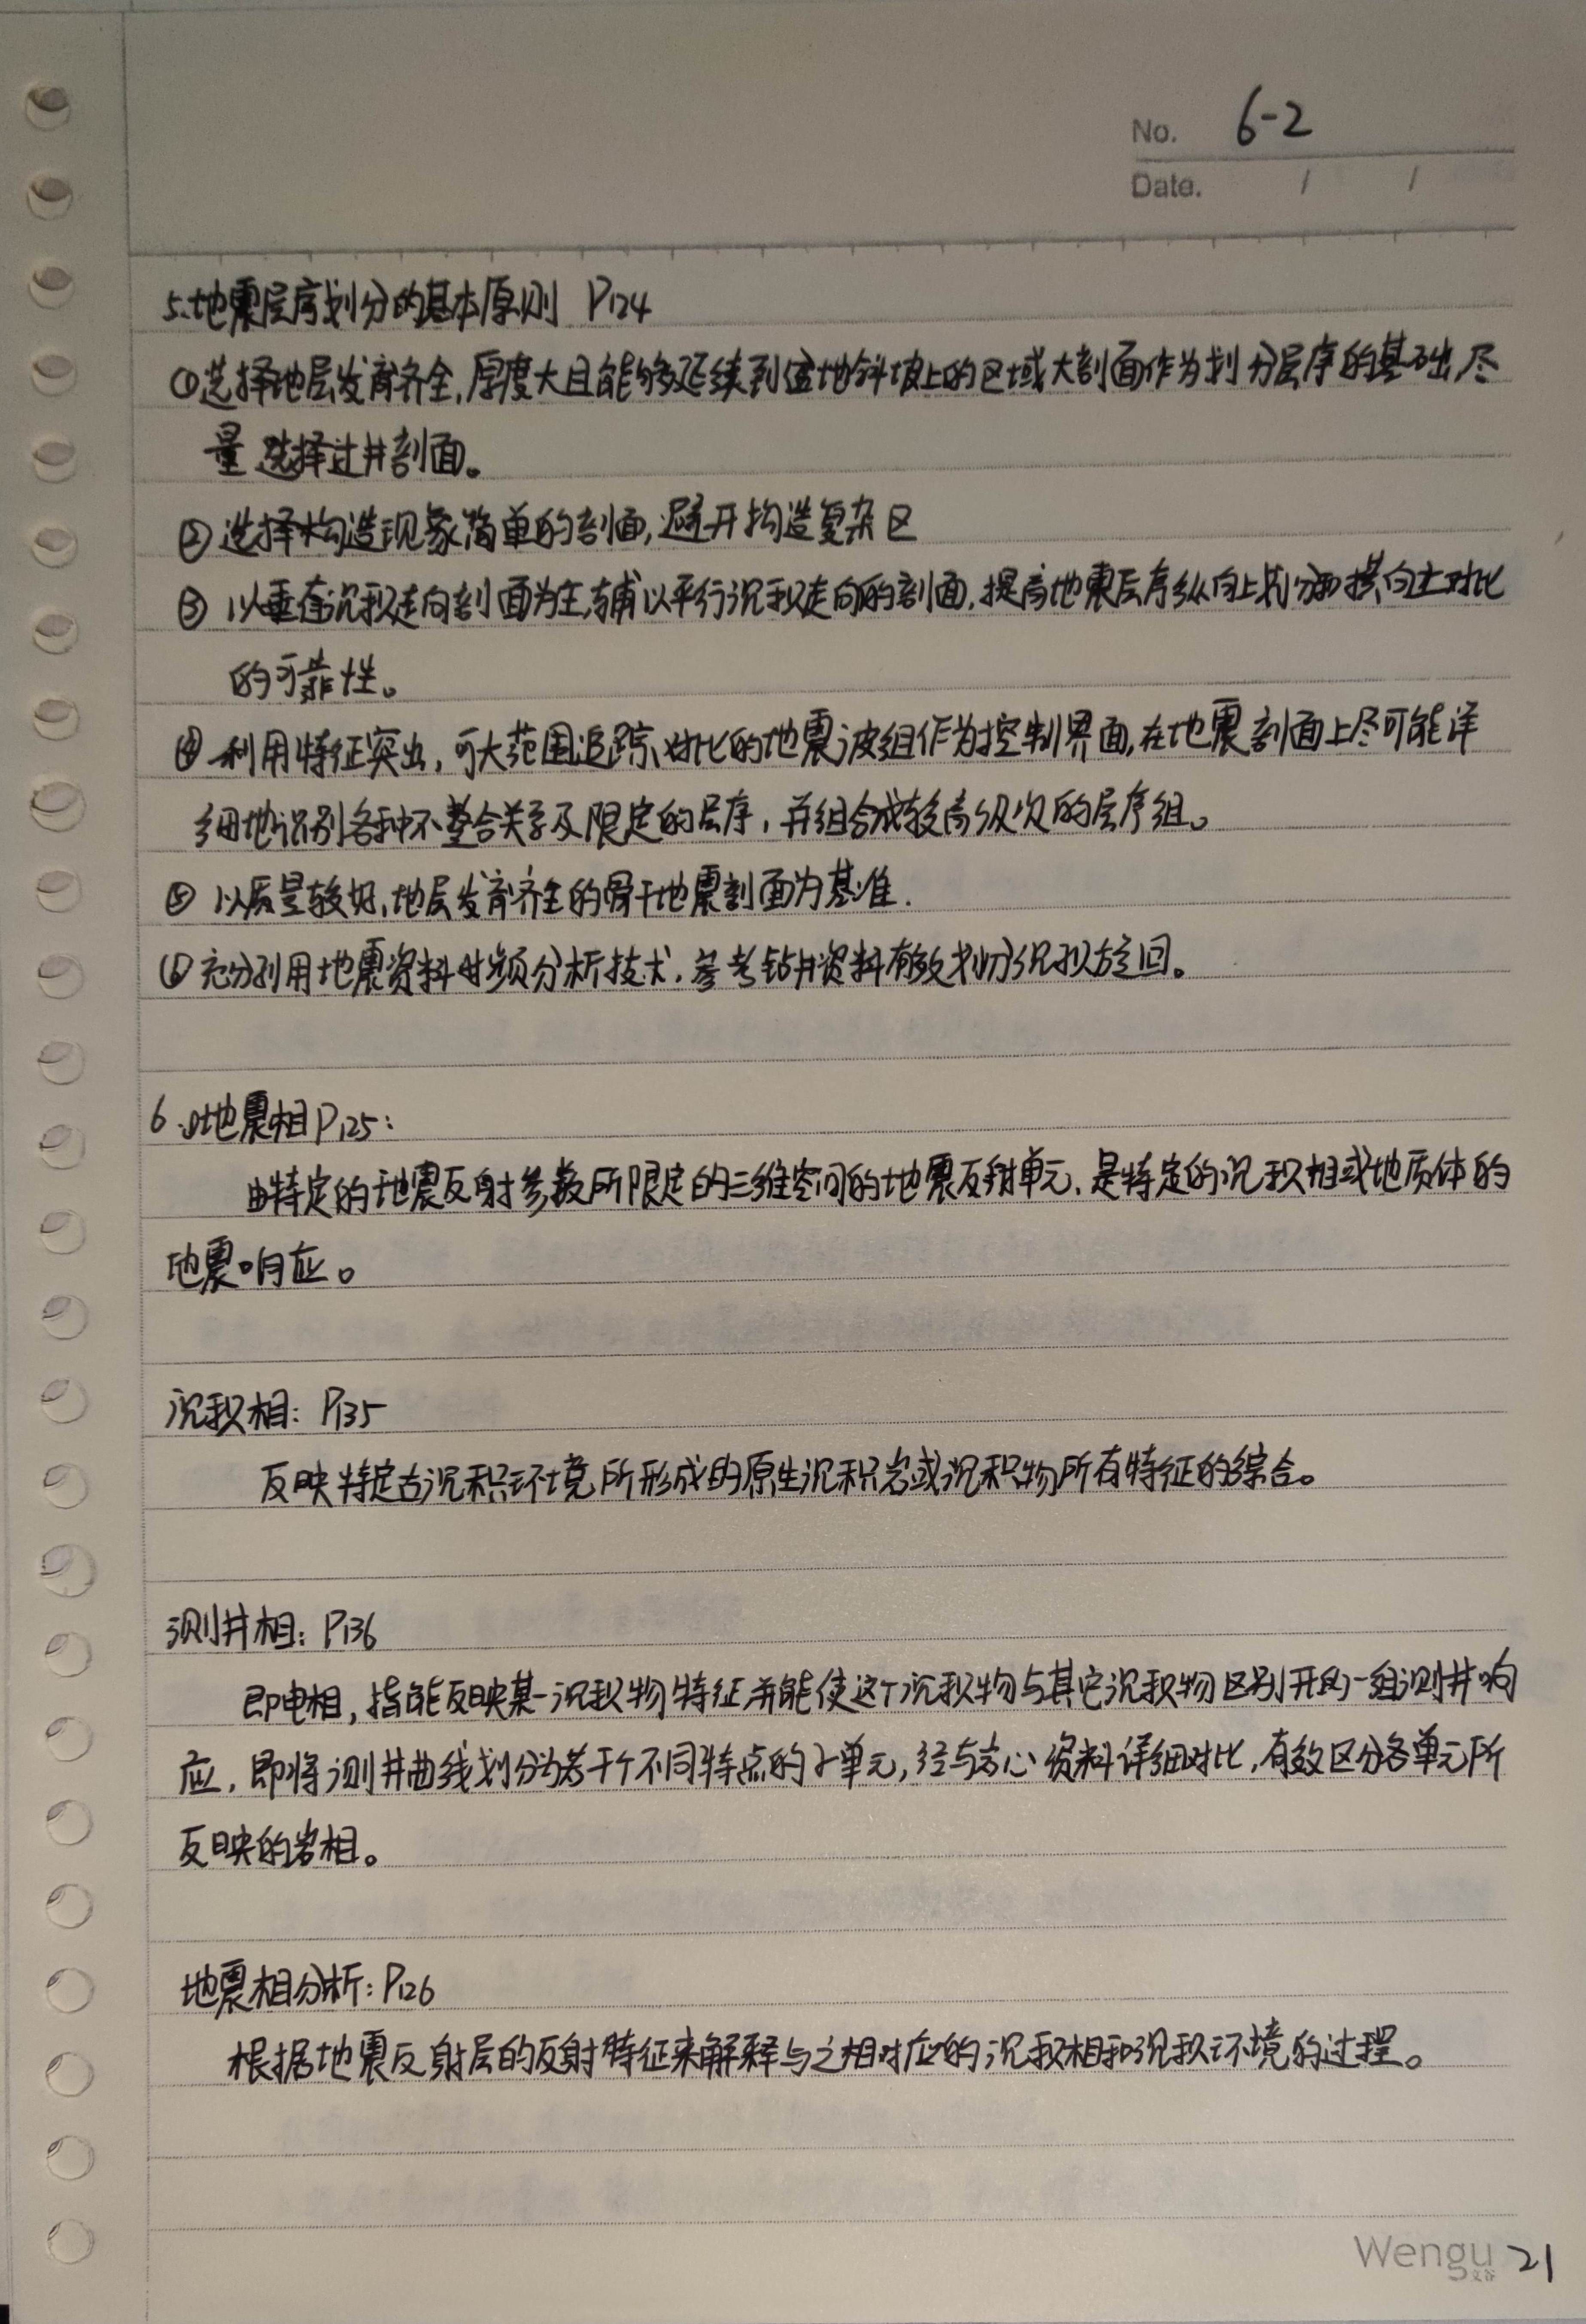 No. 6-2
Date. / /
5.地震层序划分的基本原则 P124
①选择地层发育齐全,厚度大且能够延续到盆地斜坡上的区域大剖面作为划分层序的基础,尽
量选择过井剖面。
②选择构造现象简单的剖面,避开构造复杂区
③以垂直沉积走向剖面为主,辅以平行沉积走向的剖面,提高地震层序纵向上划分和横向上对比
的可靠性。
④利用特征突出,可大范围追踪、对比的地震波组作为控制界面,在地震剖面上尽可能详
细地识别各种不整合关系及限定的层序,并组合成较高级次的层序组。
⑤以质量较好,地层发育齐全的骨干地震剖面为基准.
⑥充分利用地震资料时频分析技术,参考钻井资料有效划分沉积旋回。
6.地震相P125:
由特定的地震反射参数所限定的三维空间的地震反射单元,是特定的沉积相或地质体的
地震响应。
沉积相: P135
反映特定古沉积环境所形成的原生沉积岩或沉积物所有特征的综合。
测井相: P136
即电相,指能反映某一沉积物特征并能使这个沉积物与其它沉积物区别开的一组测井响
应,即将测井曲线划分为若干个不同特点的小单元,经与岩心资料详细对比,有效区分各单元所
反映的岩相。
地震相分析: P126
根据地震反射层的反射特征来解释与之相对应的沉积相和沉积环境的过程。
Wengu 文谷 21